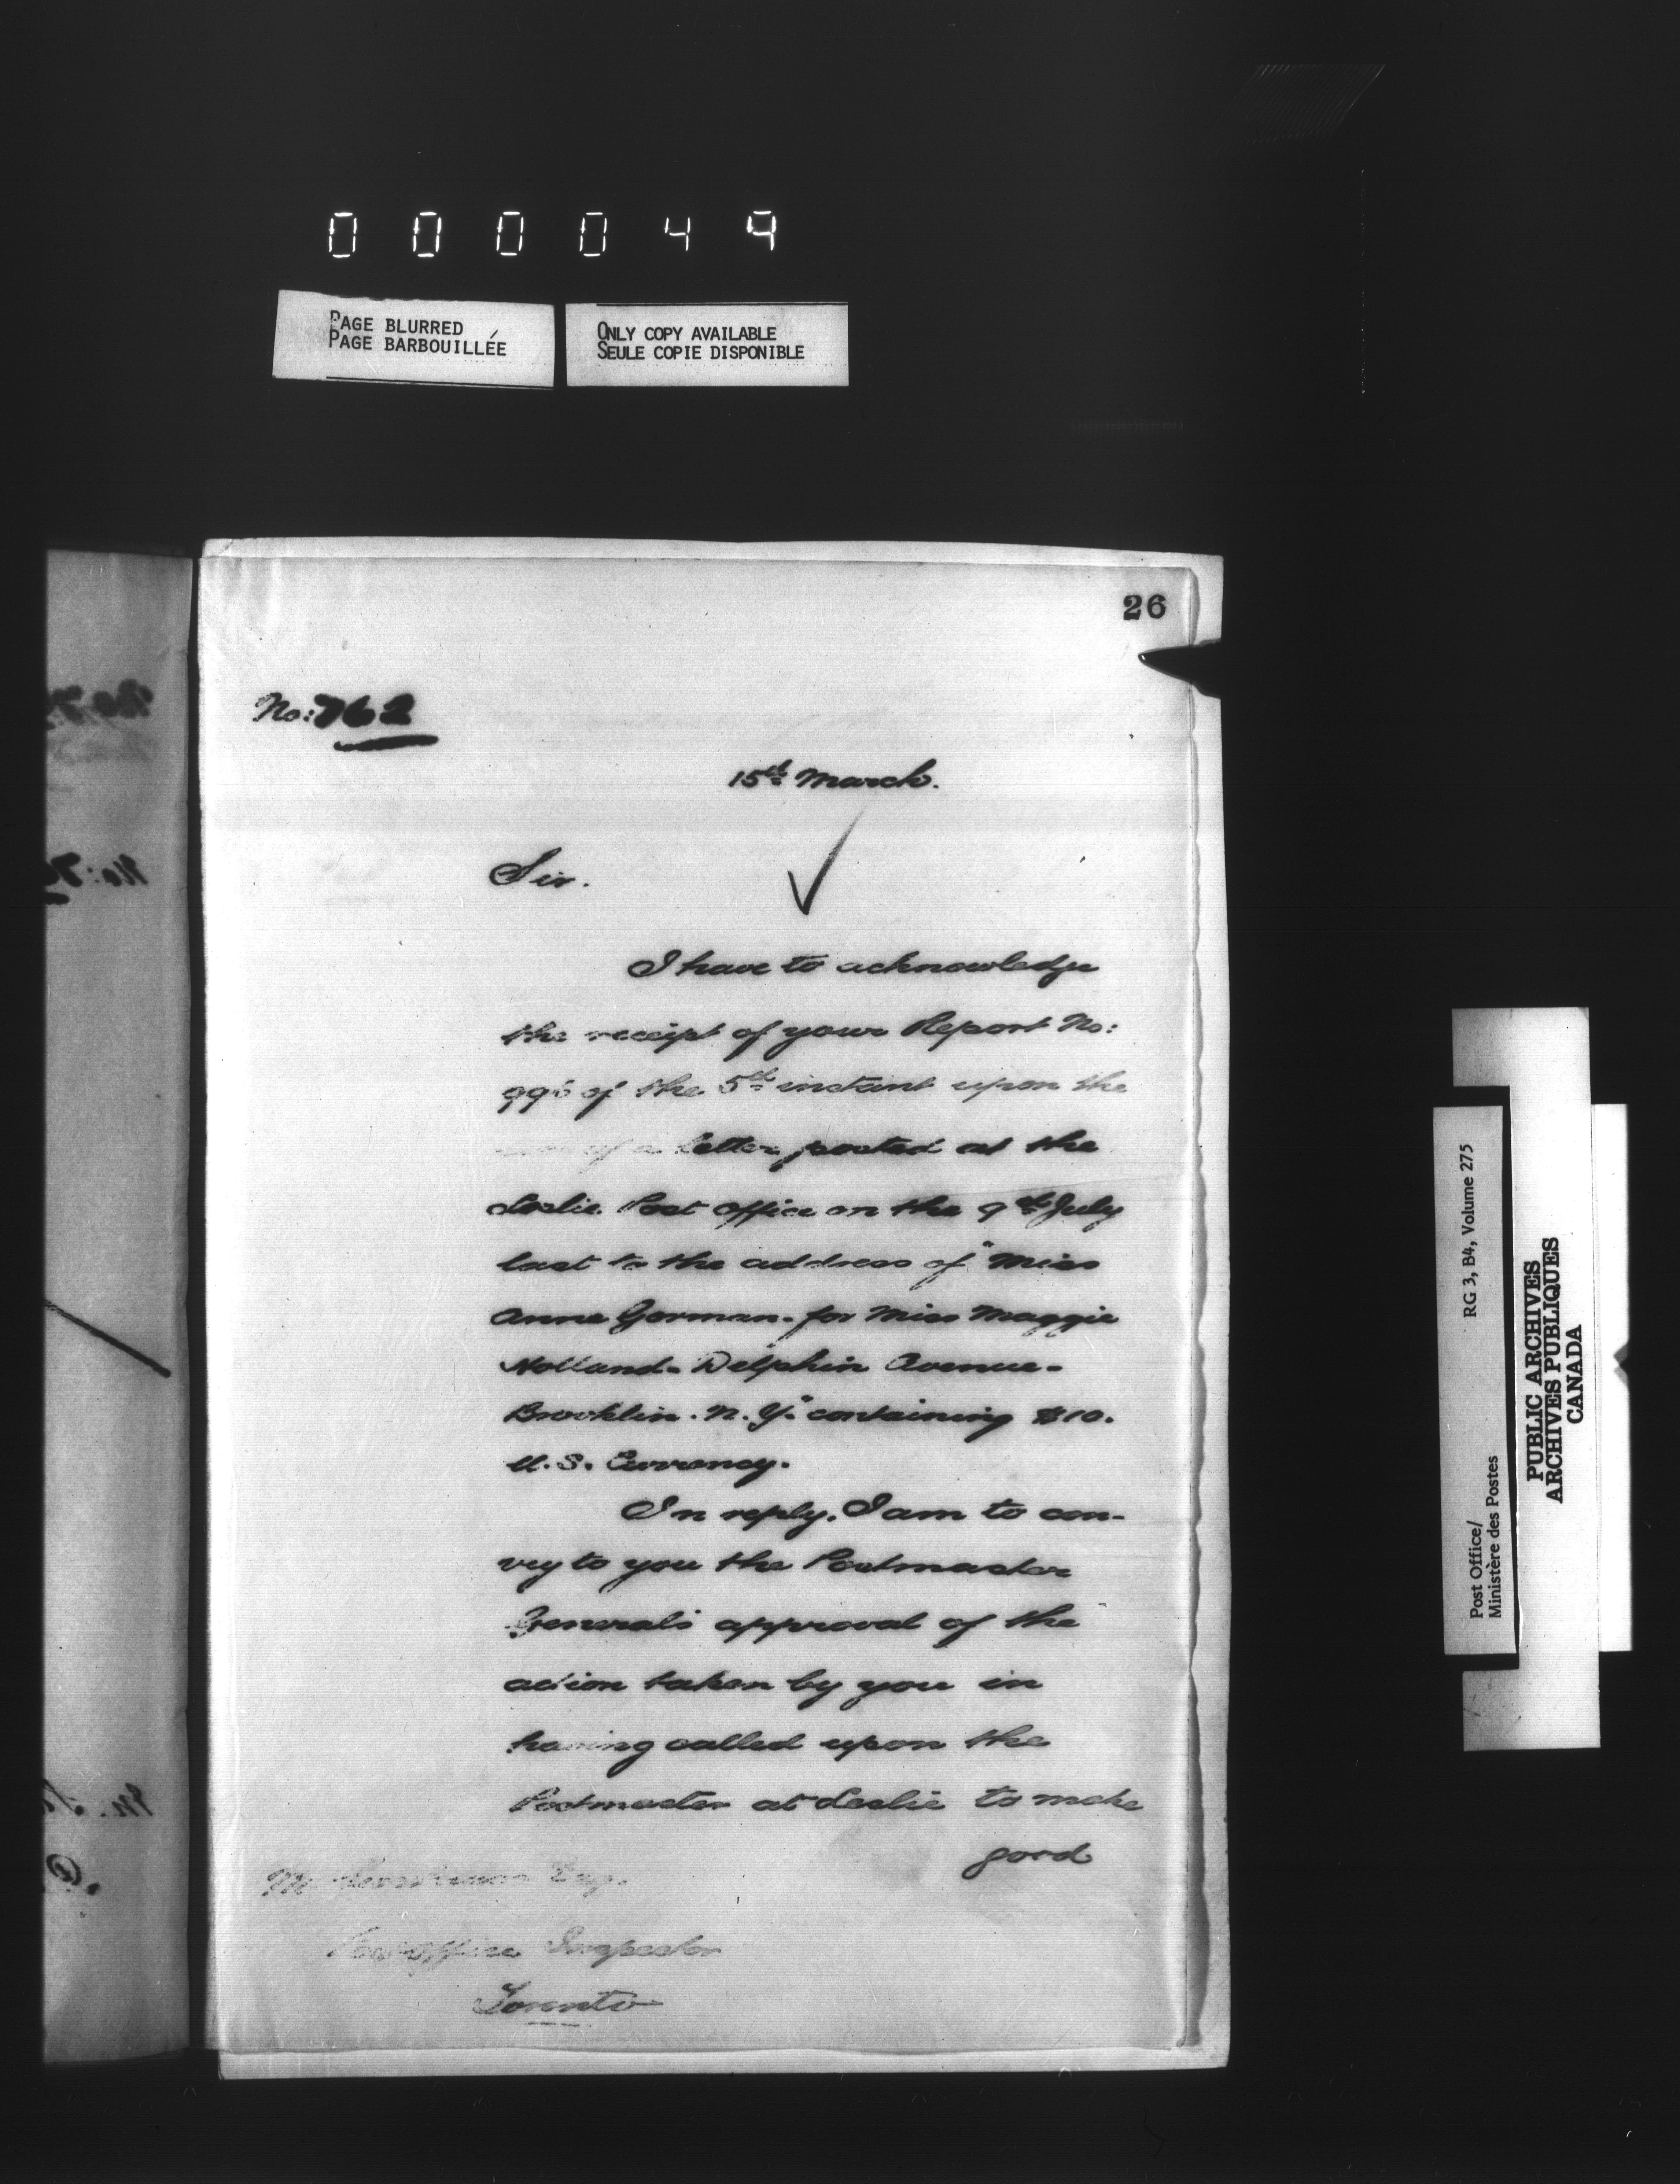 000049
PAGE BLURRED
PAGE BARBOUILLÉE
ONLY COPY AVAILABLE
SEULE COPIE DISPONIBLE
26
No: 762
15th March.
Sir.
I have to acknowledge
the receipt of your Report No:
of the 5th instant upon the
of a letter posted at the
Leslie Post Office on the 9th July
last to the address of "Miss
Anne Gorman. for Miss Maggie
Holland- Delphin Avenue-
Brooklin. N. Y." containing $10.
U. S. Currency.
In reply. I am to con-
vey to you the Postmaster
General's approval of the
action taken by you in
having called upon the
Postmaster at Leslie to make
good
Esq.
Post Office Inspector
Toronto
RG 3, B4, Volume 275
Post Office/
Ministère des Postes
PUBLIC ARCHIVES
ARCHIVES PUBLIQUES
CANADA